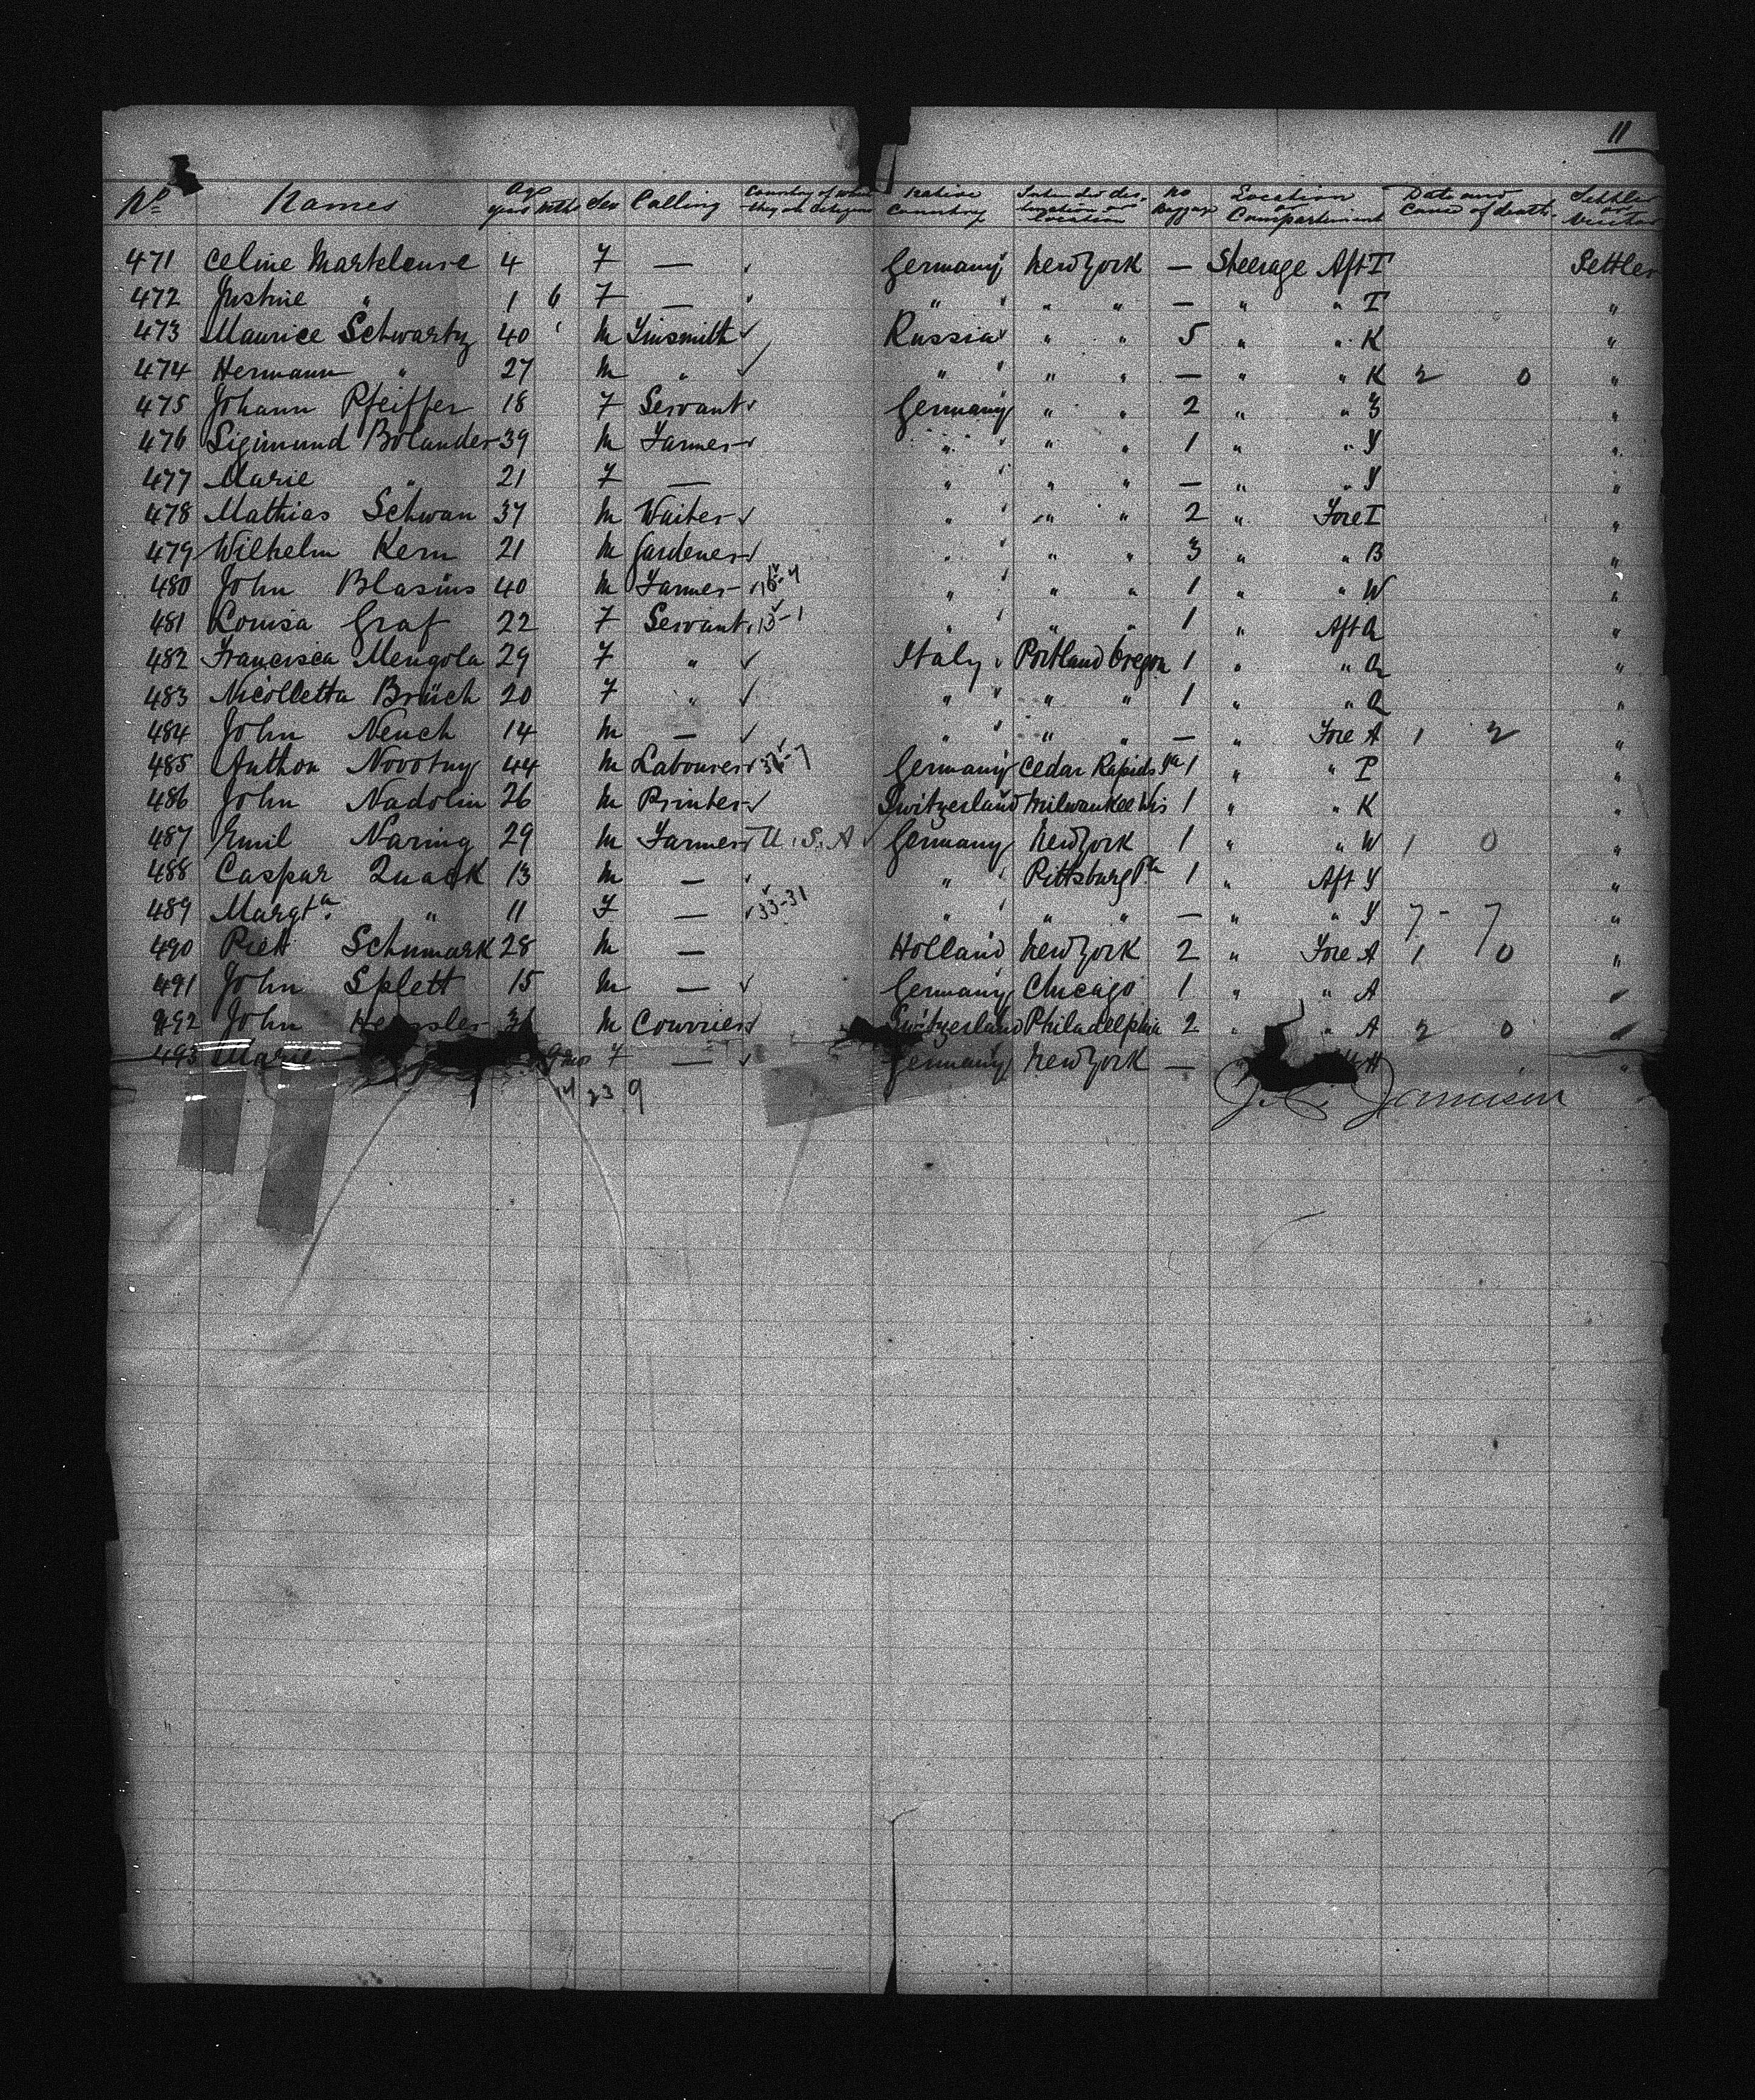 11
No. Names Age years mths Sex Calling Country of which they are citizens Native Country Intended destination or Location No Baggage Location or Compartment Date and Cause of death. Settler or
471 Celine 4 F — Germany New York — Steerage Aft I Settler
472 Justine " 1 6 F — " " " — " " I "
473 Maurice Schwartz 40 M Tinsmith Russia " " 5 " " K "
474 Hermann " 27 M " " " " — " " K 2 0 "
475 Johann Pfeiffer 18 F Servant Germany " " 2 " " "
476 Sigimund Bolander 39 M Farmer " " " 1 " " Y "
477 Marie " 21 F — " " " — " " Y "
478 Mathias Schwan 37 M Waiter " " " 2 " Fore I "
479 Wilhelm Kern 21 M Gardener " " " 3 " " B "
480 John Blasius 40 M Farmer " " " 1 " " W "
481 Louisa Graf 22 F Servant 15-1 " " " 1 " Aft Q "
482 Francisca Mengola 29 F " Italy Portland Oregon 1 " " Q "
483 Nicolletta Brüch 20 F " " " " 1 " " Q "
484 John Neuch 14 M — " " " — " Fore A 1 2 "
485 Anthon Novotny 44 M Labourer Germany Cedar Rapids Ia 1 " " P "
486 John Nadolin 26 M Printer Switzerland Milwaukee Wis 1 " " K "
487 Emil Naring 29 M Farmer U.S.A Germany New York 1 " " W 1 0 "
488 Caspar Quack 13 M — " Pittsburg Pa 1 " Aft Y "
489 Margta. " 11 F — 33-31 " " " — " " Y 7-7 "
490 Piet Schumark 28 M — Holland New York 2 " Fore A 1 0 "
491 John Splett 15 M — Germany Chicago 1 " " A "
492 John M Courrier Switzerland Philadelphia 2 " " A 2 0 "
493 Marie 9 mos F — Germany New York — "
14 23 9
Jamison